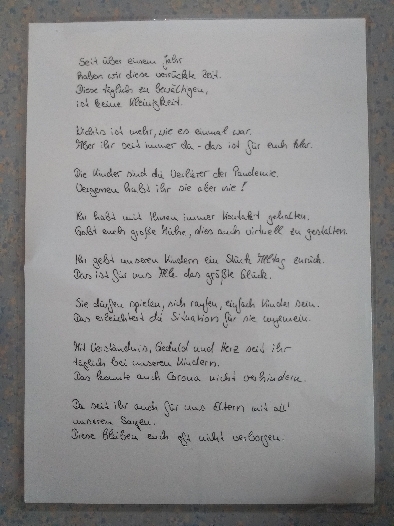 Seit über einem Jahr
haben wir diese verrückte Zeit.
Diese täglich zu bewältigen,
ist keine Kleinigkeit.
Nichts ist mehr, wie es einmal war.
Aber ihr seit immer da - das ist für euch klar.
Die Kinder sind die Verlierer der Pandemie.
Vergessen habt ihr sie aber nie!
Ihr habt mit Ihnen immer Kontakt gehalten.
Gebt euch große Mühe, dies auch virtuell zu gestalten.
Ihr gebt unseren Kindern ein Stück Alltag zurück.
Das ist für uns Alle das größte Glück.
Sie dürfen spielen, sich raufen, einfach Kinder sein.
Das erleichtert die Situation für sie ungemein.
Mit Verständnis, Geduld und Herz seit ihr
täglich bei unseren Kindern.
Das konnte auch Corona nicht verhindern.
Da seit ihr auch für uns Eltern mit all'
unseren Sorgen.
Diese bleiben euch oft nicht verborgen.